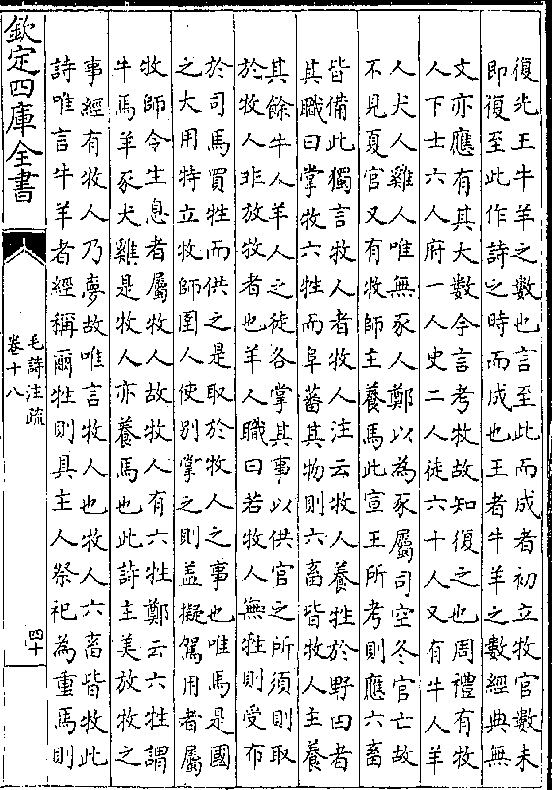 復先王牛羊之數也言至此而成者初立牧官數未
即復至此作詩之時而成也王者牛羊之數經典無
文亦應有其大數今言考牧故知復之也周禮有牧
人下士六人府一人史二人徒六十人又有牛人羊
人犬人雞人唯無豕人鄭以為豕屬司空冬官亡故
不見夏官又有牧師主養馬此宣王所考則應六畜
皆備此獨言牧人者牧人注云牧人養牲於野田者
其職曰掌牧六牲而阜蕃其物則六畜皆牧人主養
其餘牛人羊人之徒各掌其事以供官之所須則取
於牧人非放牧者也羊人職曰若牧人無牲則受布
於司馬買牲而供之是取於牧人之事也唯馬是國
之大用特立牧師圉人使別掌之則蓋擬駕用者屬
牧師令生息者屬牧人故牧人有六牲鄭云六牲謂
牛馬羊豕犬雞是牧人亦養馬也此詩主美放牧之
事經有牧人乃夢故唯言牧人也牧人六畜皆牧此
詩唯言牛羊者經稱爾牲則具主人祭祀為重馬則
欽定四庫全書
毛詩注疏
卷十八
四十